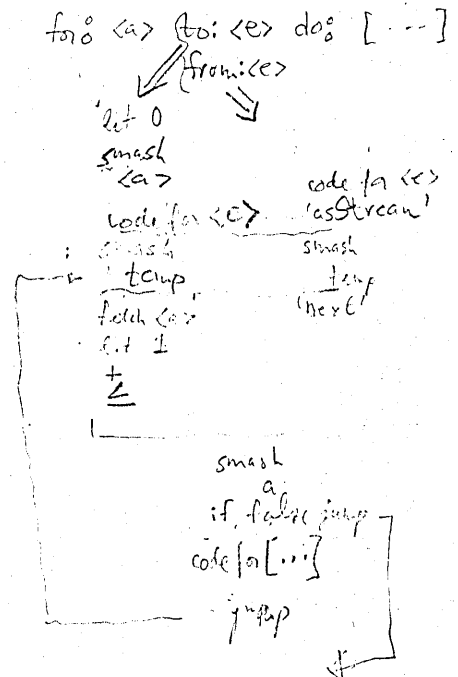 for: <a> to: <e> do: [ ... ]
from: <e>
'lit 0
smash
<a>
code for <e>
smash
temp
fetch <a>
lit 1
+
≤
code for <e>
'asStream'
smash
temp
'next'
smash
a
if false jump
code for [...]
jump